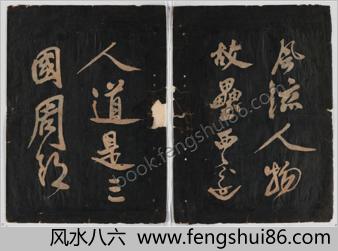 風流人物
故壘西邊
人道是三
國周郎
book.fengshui86.com
风水八六 www.fengshui86.com